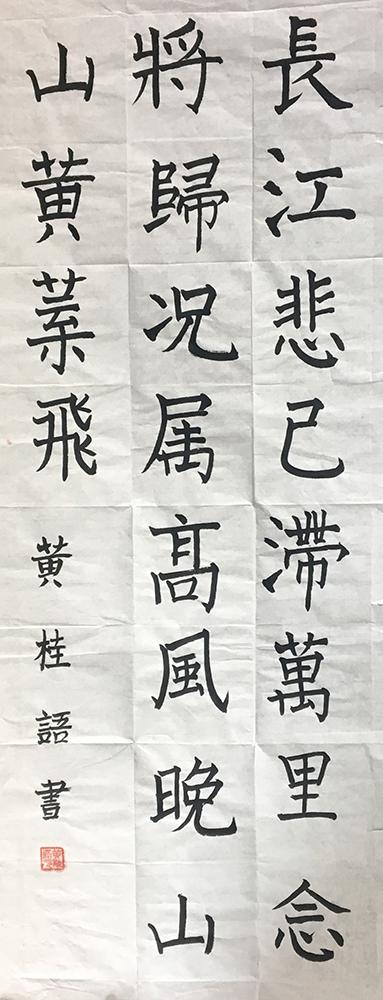 長江悲已滯萬里念
將歸況属高風晚山
山黃葉飛
黃桂語書